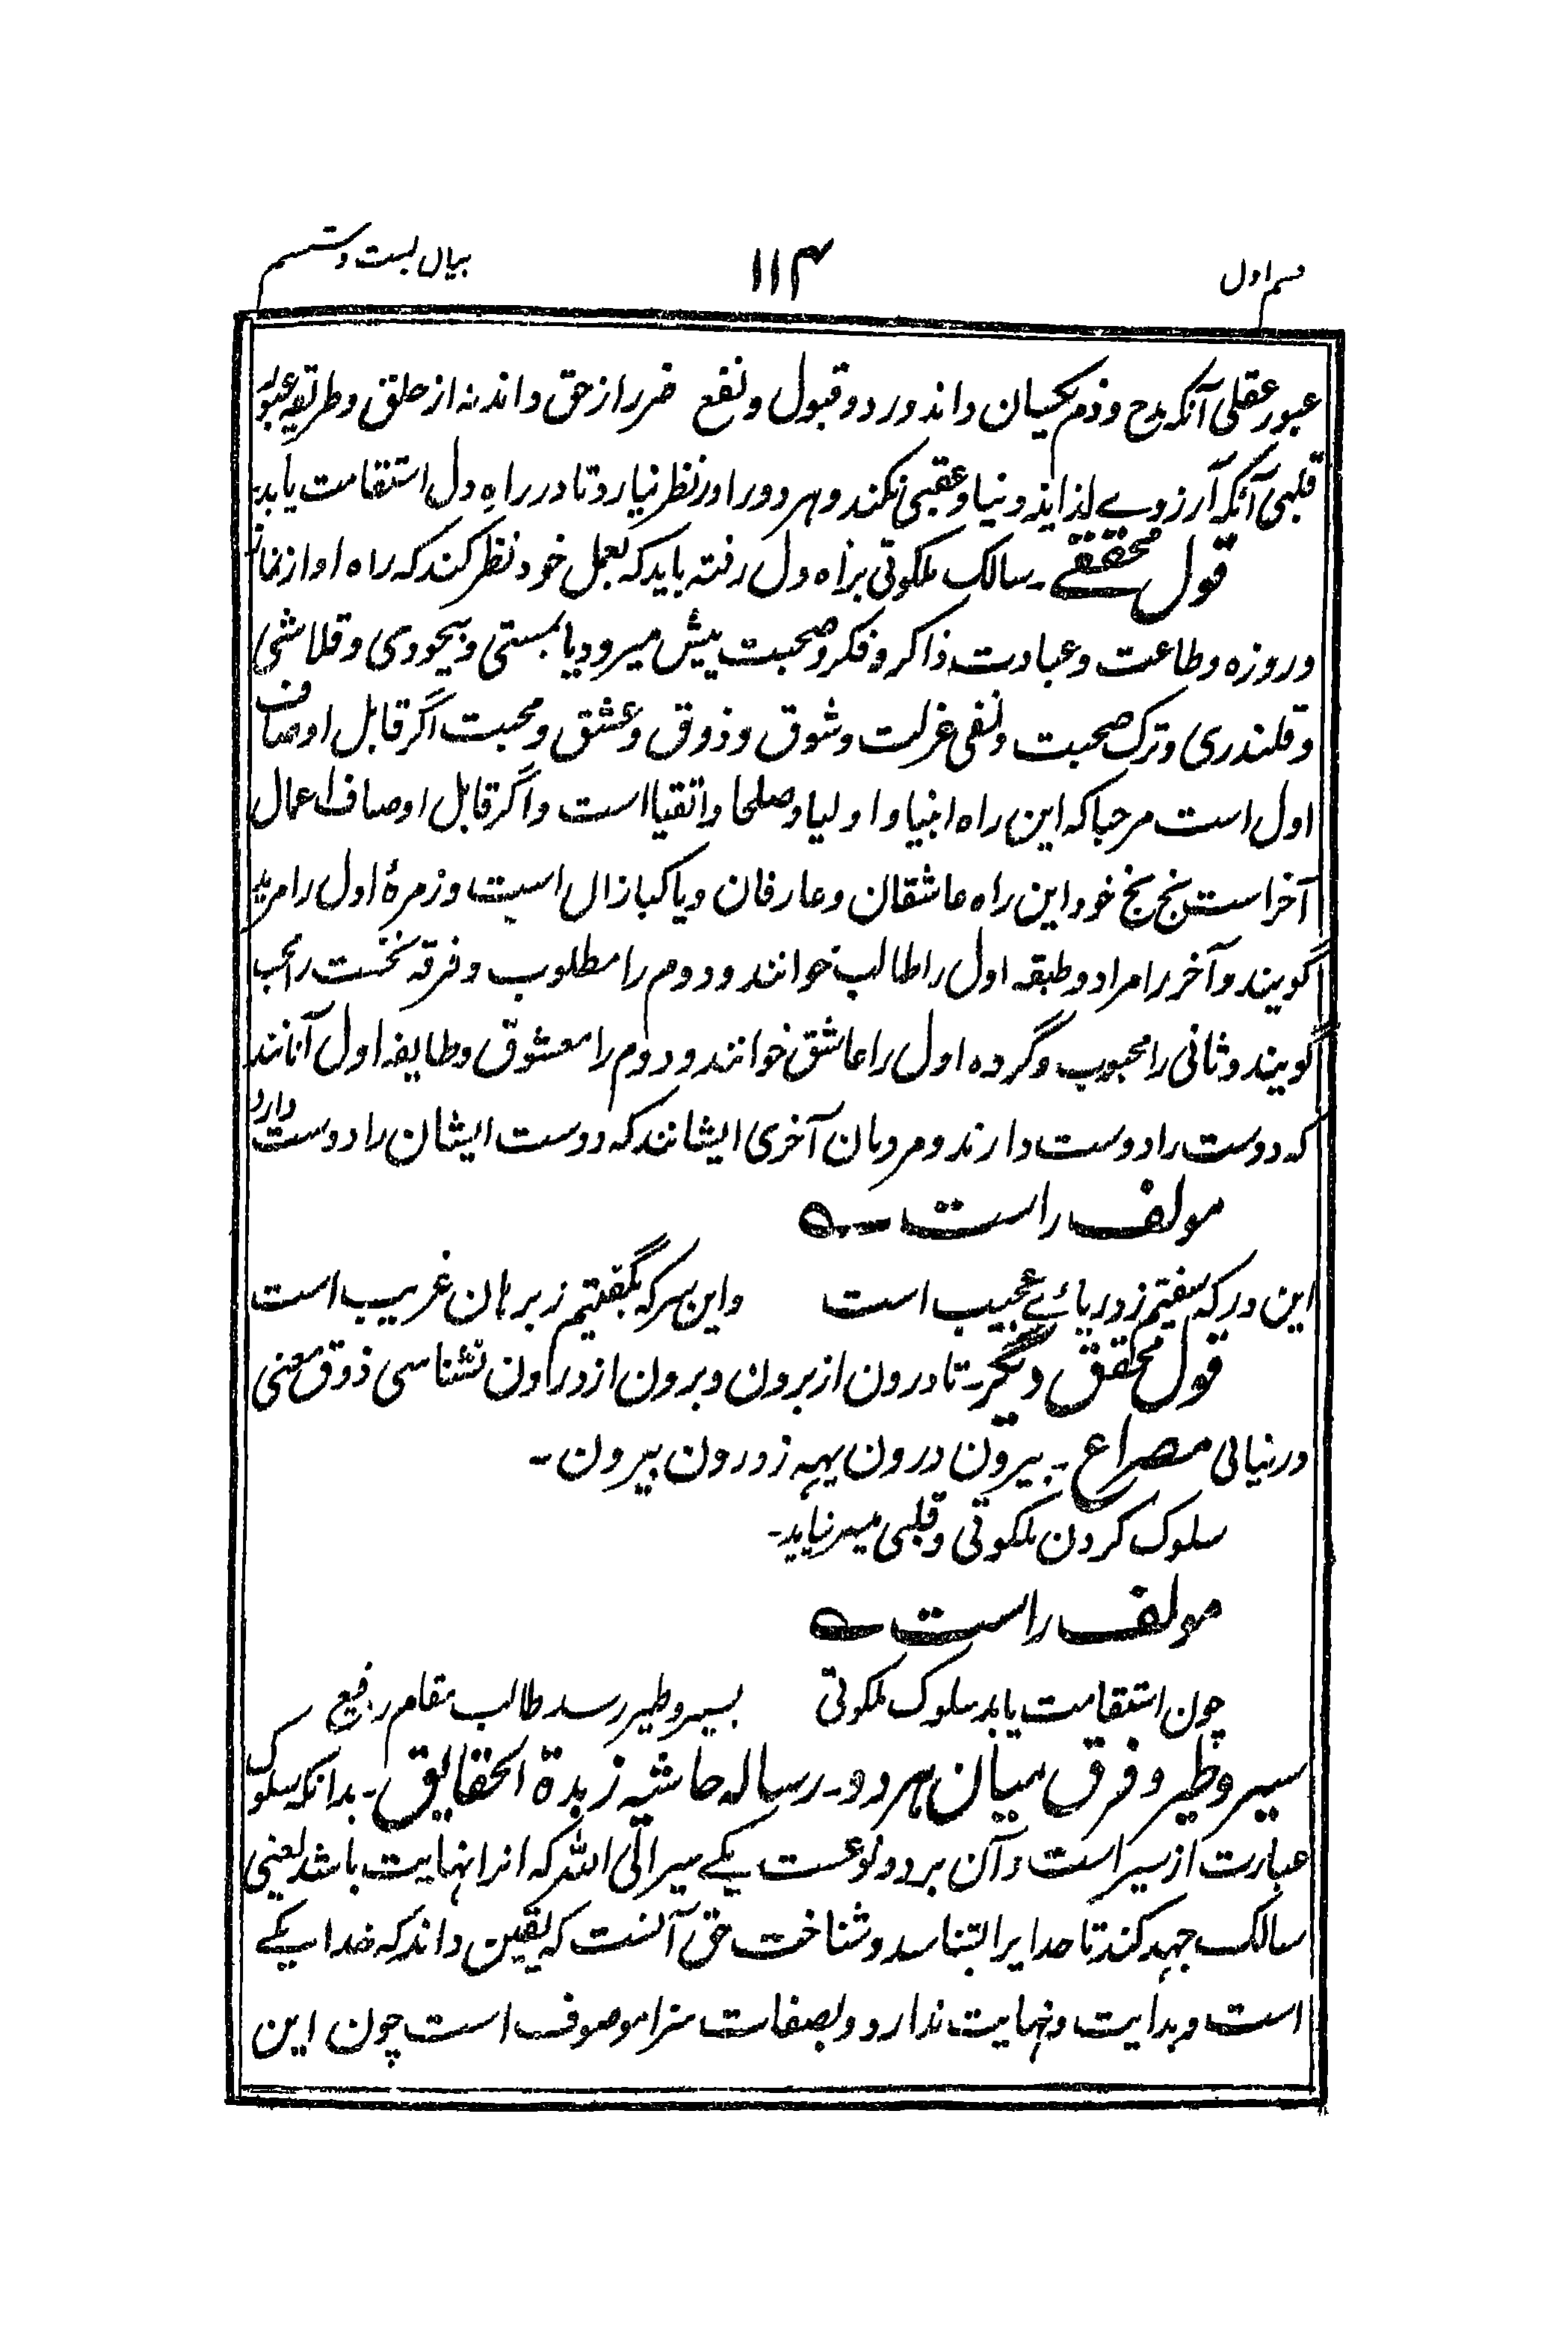 قسم اول
۱۱۴
بیان بست و ششم
عبور عقلی آنکه مدح و ذم یکسان داند و رد و قبول و نفع ضرر از حق داند نه از خلق و طریقه عبور
قلبی آنکه آرزوے لذایذ دنیا و عقبی نکند و هر دو را در نظر نیارد تا در راهِ دل استقامت یابد
قول محققے ـ سالک ملکوتی براه دل رفته باید که بعمل خود نظر کند که راه او از نماز
و روزه و طاعت و عبادت ذاکر و فکر و صحبت پیش میرود یا بمستی و بیخودی و قلاشی
و قلندری و ترک صحبت و نفی عزلت و شوق و ذوق و عشق و محبت اگر قابل اوصاف
اول است مرحبا که این راه انبیا و اولیا و صلحا و اتقیا است و اگر قابل اوصاف اعمال
آخر است بخ بخ خود این راه عاشقان و عارفان و پاکبازان است و زمرۀ اول را مرید
گویند و آخر را مراد و طبقه اول را طالب خوانند و دوم را مطلوب و فرقه نخست را محب
گویند و ثانی را محبوب و گروه اول را عاشق خوانند و دوم را معشوق و طایفه اول آنانند
که دوست را دوست دارند و مردمان آخری ایشانند که دوست ایشان را دوست دارد
مولف راست ـ ه
این در که سفتیم ز دریائے عجیب است واین سر که بگفتیم ز برهان غریب است
قول محقق دیگر ـ تا درون از برون و برون از درون نشناسی ذوق معنی
در نیابی مصراع ـ بیرون درون بهه ز درون بیرون ـ
سلوک کردن ملکوتی و قلبی میسر نیاید ـ
مولف راست ـ ه
چون استقامت یابد سلوک ملکوتی بسیر و طیر رسد طالب مقام رفیع
سیر و طیر و فرق میان هر دو ـ رساله حاشیه زبدة الحقایق ـ بدانکه سلوک
عبارت از سیر است و آن بر دو نوعست یکے سیر الی الله که انرا نهایت باشد یعنی
سالک جهد کند تا خدایرا بشناسد و شناخت حق آنست که یقین داند که خدا یکے
است و بدایت و نهایت ندارد و بصفات سزا موصوف است چون این